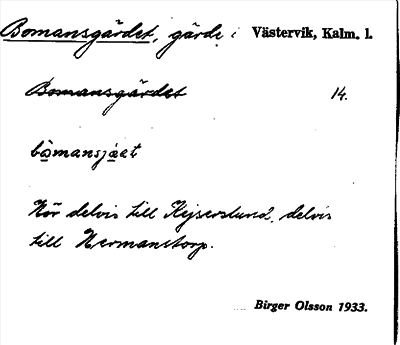 Bomansgärdet, gärde i Västervik, Kalm. l.
Bomansgärdet 14.
Hör delvis till Kejserslund, delvis
till Hermanstorp.
Birger Olsson 1933.